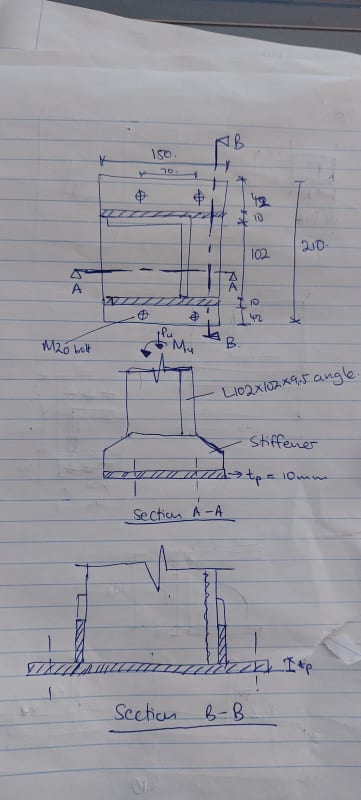 B
150.
70.
42
10
102
210.
A
A
10
42
M20 bolt
B.
Pu
Mu
L102x102x9,5 angle.
Stiffener
tp = 10mm
Section A-A
tp
Section B-B